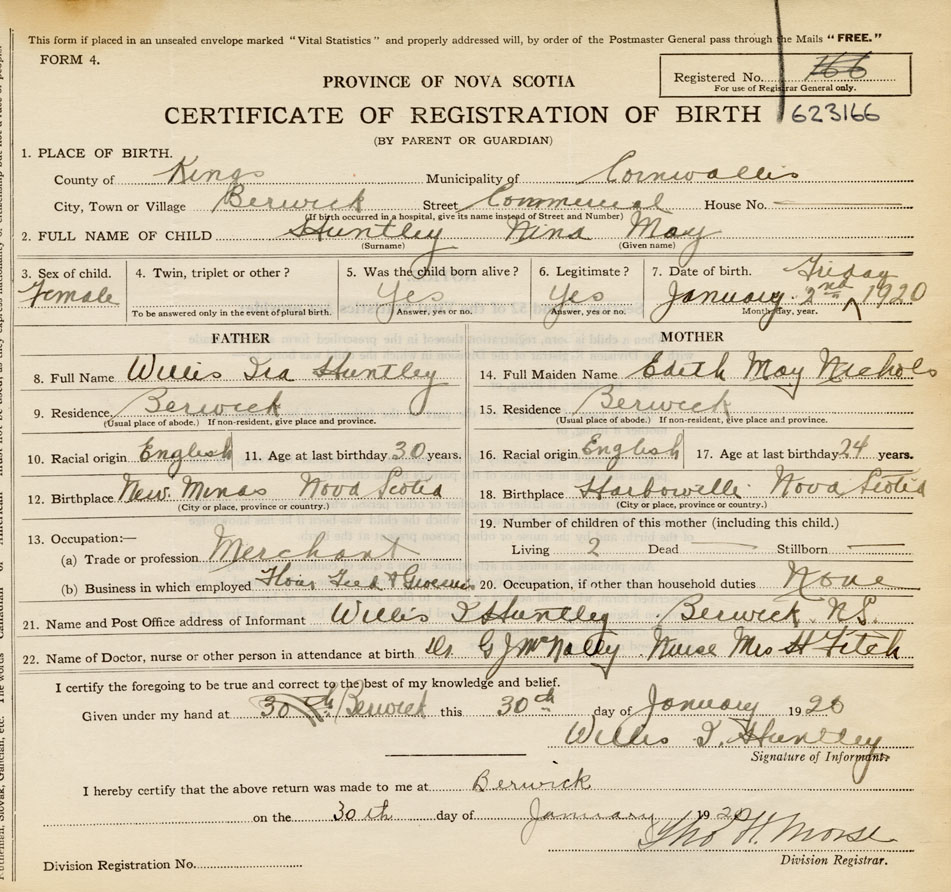 This form if placed in an unsealed envelope marked "Vital Statistics" and properly addressed will, by order of the Postmaster General pass through the Mails "FREE."
FORM 4.
Registered No. 166
For use of Registrar General only.
PROVINCE OF NOVA SCOTIA
CERTIFICATE OF REGISTRATION OF BIRTH 623166
(BY PARENT OR GUARDIAN)
1. PLACE OF BIRTH.
County of Kings Municipality of Cornwallis
City, Town or Village Berwick Street Commercial House No.
(If birth occurred in a hospital, give its name instead of Street and Number)
2. FULL NAME OF CHILD Huntley Nina May
(Surname) (Given name)
3. Sex of child. 4. Twin, triplet or other? 5. Was the child born alive? 6. Legitimate? 7. Date of birth. Friday
Female Yes Yes January 2nd 1920
To be answered only in the event of plural birth. Answer, yes or no. Answer, yes or no. Month, day, year.
FATHER MOTHER
8. Full Name Willis Ira Huntley 14. Full Maiden Name Edith May Nichols
9. Residence. Berwick 15. Residence Berwick
(Usual place of abode.) If non-resident, give place and province. (Usual place of abode.) If non-resident, give place and province.
10. Racial origin English 11. Age at last birthday 30 years. 16. Racial origin English 17. Age at last birthday 24 years.
12. Birthplace New Minas Nova Scotia 18. Birthplace Harbourville Nova Scotia
(City or place, province or country.) (City or place, province or country.)
13. Occupation:— 19. Number of children of this mother (including this child.)
(a) Trade or profession Merchant Living 2 Dead Stillborn
(b) Business in which employed Flour Feed & Groceries 20. Occupation, if other than household duties None
21. Name and Post Office address of Informant Willis I Huntley Berwick N.S.
22. Name of Doctor, nurse or other person in attendance at birth Dr. G J McNally Nurse Mrs H Fitch
I certify the foregoing to be true and correct to the best of my knowledge and belief.
Given under my hand at 30th Berwick this 30th day of January 1920
Willis I. Huntley
Signature of Informant.
I hereby certify that the above return was made to me at Berwick
on the 30th day of January 1920
Tho H. Morse
Division Registrar.
Division Registration No.